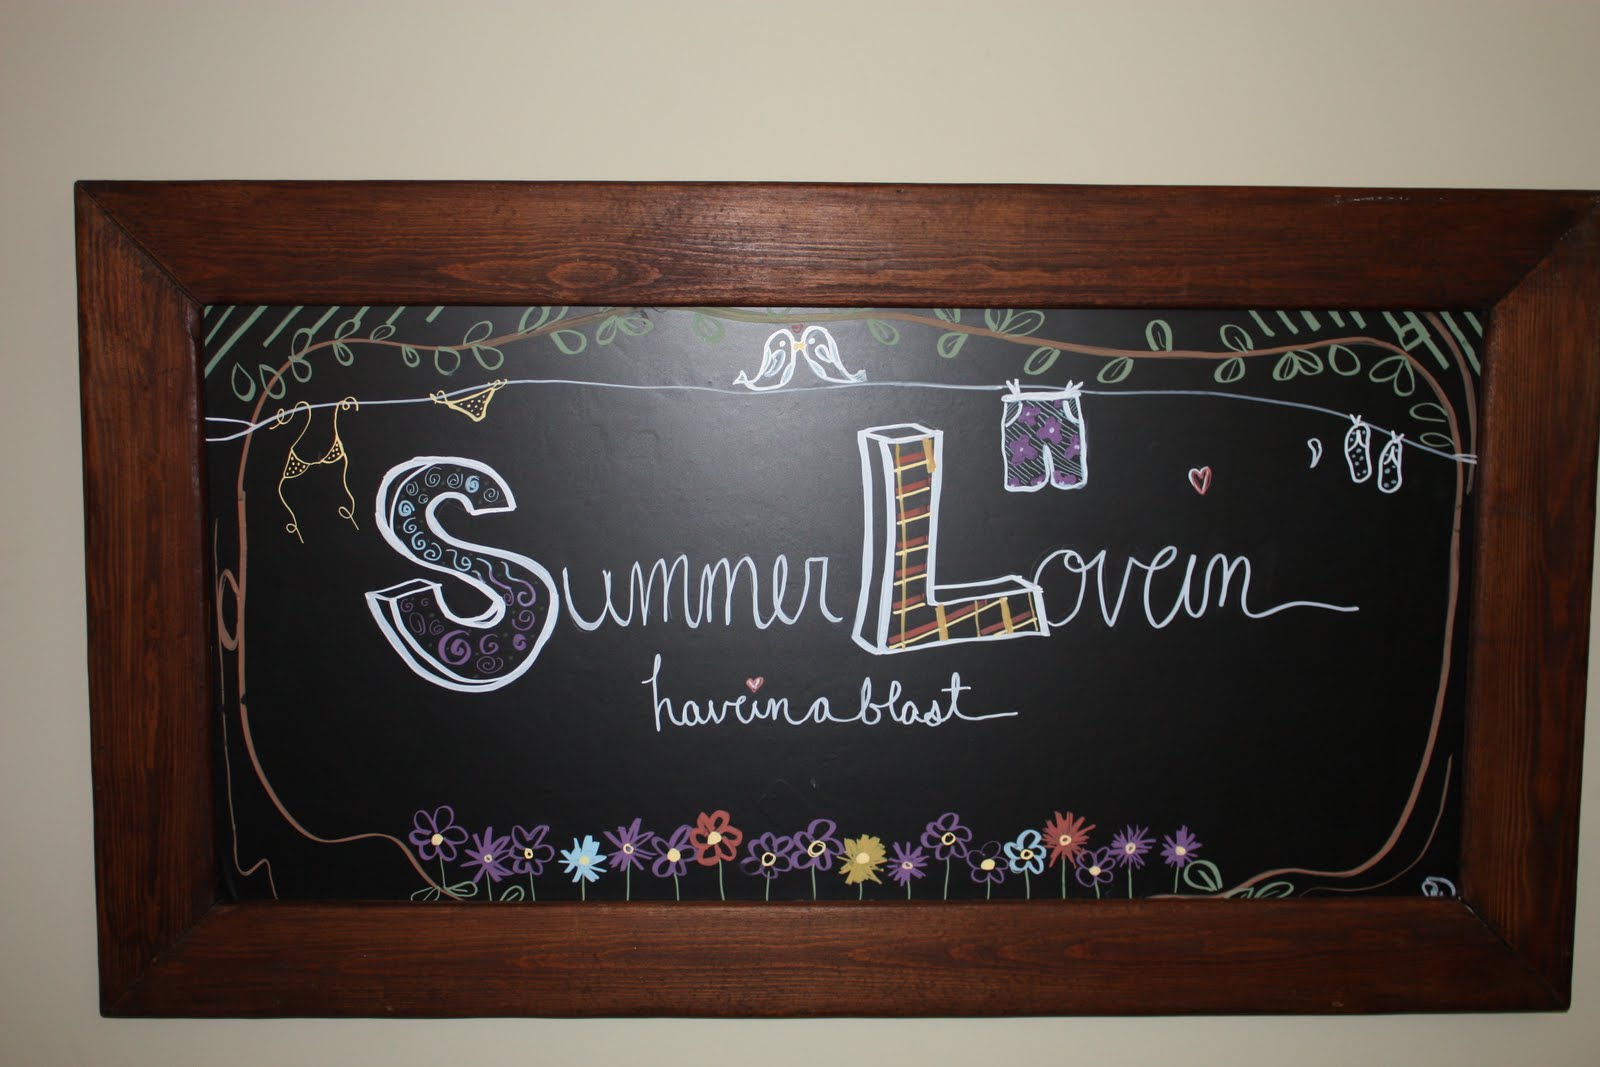 Summer Lovein
havein a blast